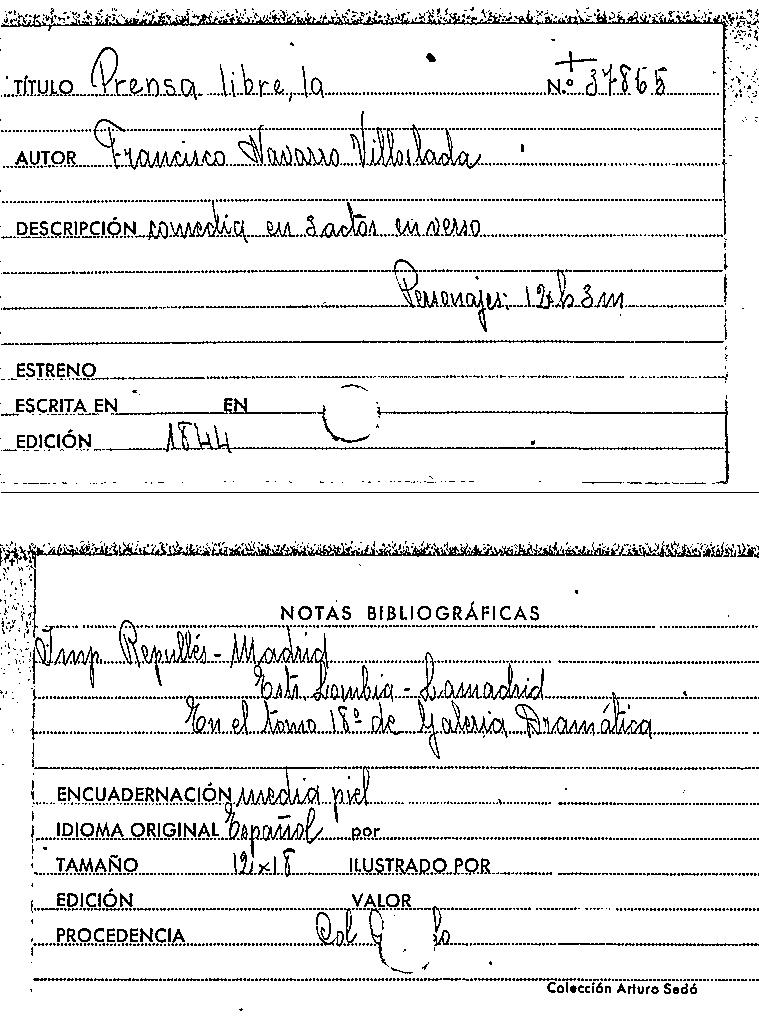 TÍTULO Prensa libre, la Nº 37865
AUTOR Francisco Navarro Villoslada
DESCRIPCIÓN comedia en 3 actos en verso
Personajes: 12 h 3 m
ESTRENO
ESCRITA EN EN
EDICIÓN 1844
NOTAS BIBLIOGRÁFICAS
Imp. Repullés - Madrid
Estr. Lombia - Lamadrid
En el tomo 18º de Galeria Dramática
ENCUADERNACIÓN media piel
IDIOMA ORIGINAL Español por
TAMAÑO 12x18 ILUSTRADO POR
EDICIÓN VALOR
PROCEDENCIA Col
Colección Arturo Sedó